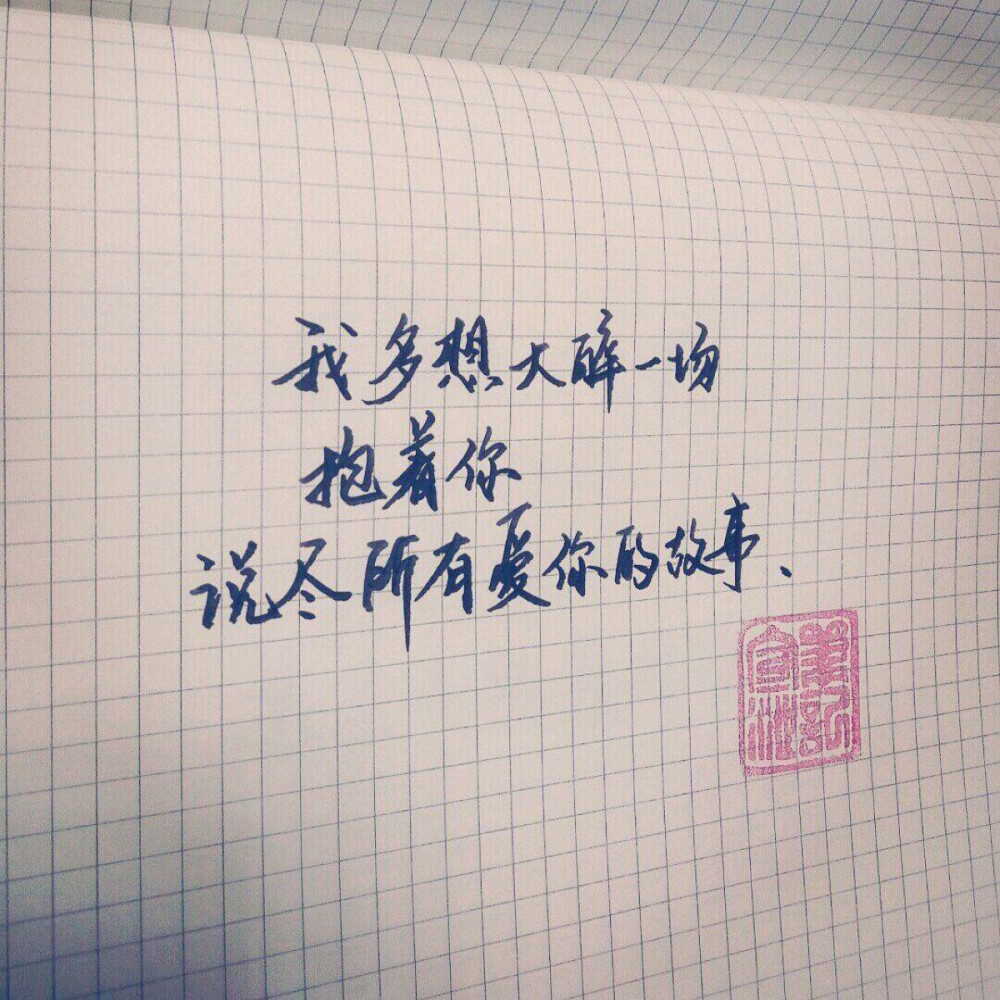 我多想大醉一场
抱着你
说尽所有爱你的故事、